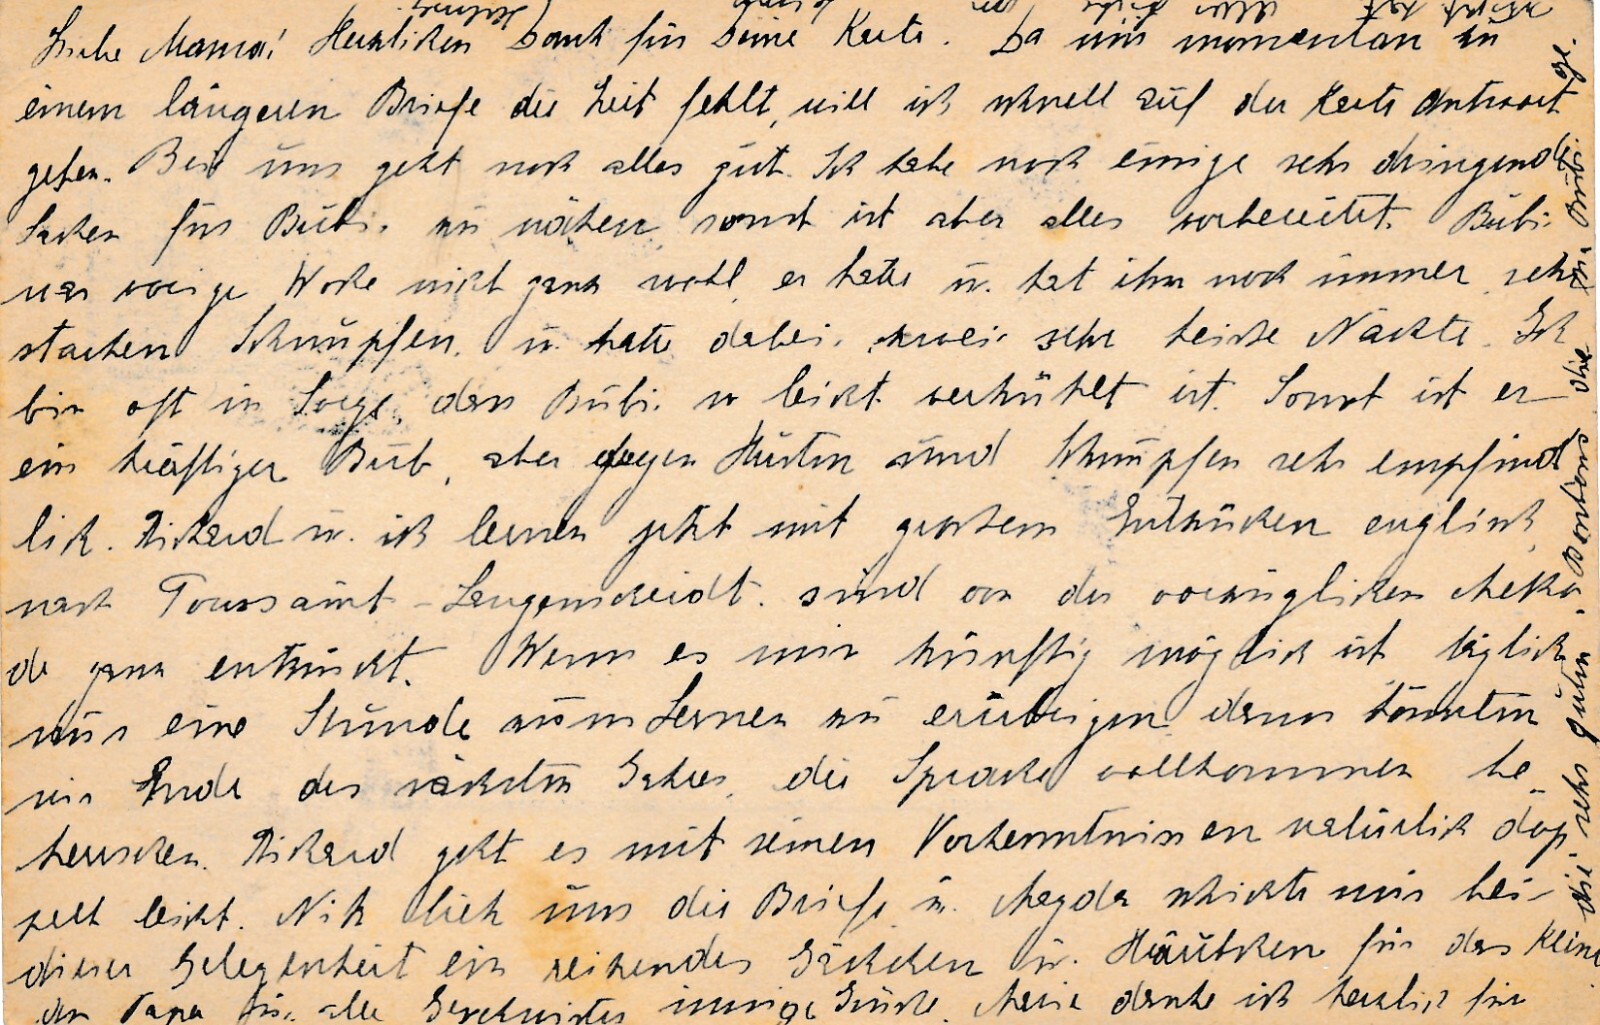 Liebe Mama! Herzlichen Dank für Deine Karte. Da mir momentan zu
einem längeren Briefe die Zeit fehlt, will ich schnell auf der Karte Antwort
geben. Bei uns geht noch alles gut. Ich habe noch einige sehr dringende
Sachen für Bubi zu nähen, sonst ist aber alles vorbereitet. Bubi
war vorige Woche nicht ganz wohl, er hatte u. hat ihn noch immer, sehr
starken Schnupfen, u. hatte dabei zwei sehr heiße Nächte. Ich
bin oft in Sorge, dass Bubi so leicht verkühlt ist. Sonst ist er
ein kräftiger Bub, aber gegen Husten und Schnupfen sehr empfind
lich. Richard u. ich lernen jetzt mit grossem Entzücken englisch
nach Toussaint-Langenscheidt, sind von der vorzüglichen Metho-
de ganz entzückt. Wenn es mir künftig möglich ist täglich
nur eine Stunde zum Lernen zu erübrigen, dann könnten
wir Ende des nächsten Jahres, die Sprache vollkommen be
herrschen. Richard geht es mit seinen Vorkenntnissen natürlich dop-
pelt leicht. Nik lieh uns die Briefe u. Magda schickte mir bei
dieser Gelegenheit ein reizendes Jäckchen u. Häubchen für das Kleine
der Papa für alle Geschwister innige Grüße. danke ich herzlich für
die sehr guten Bonbons die